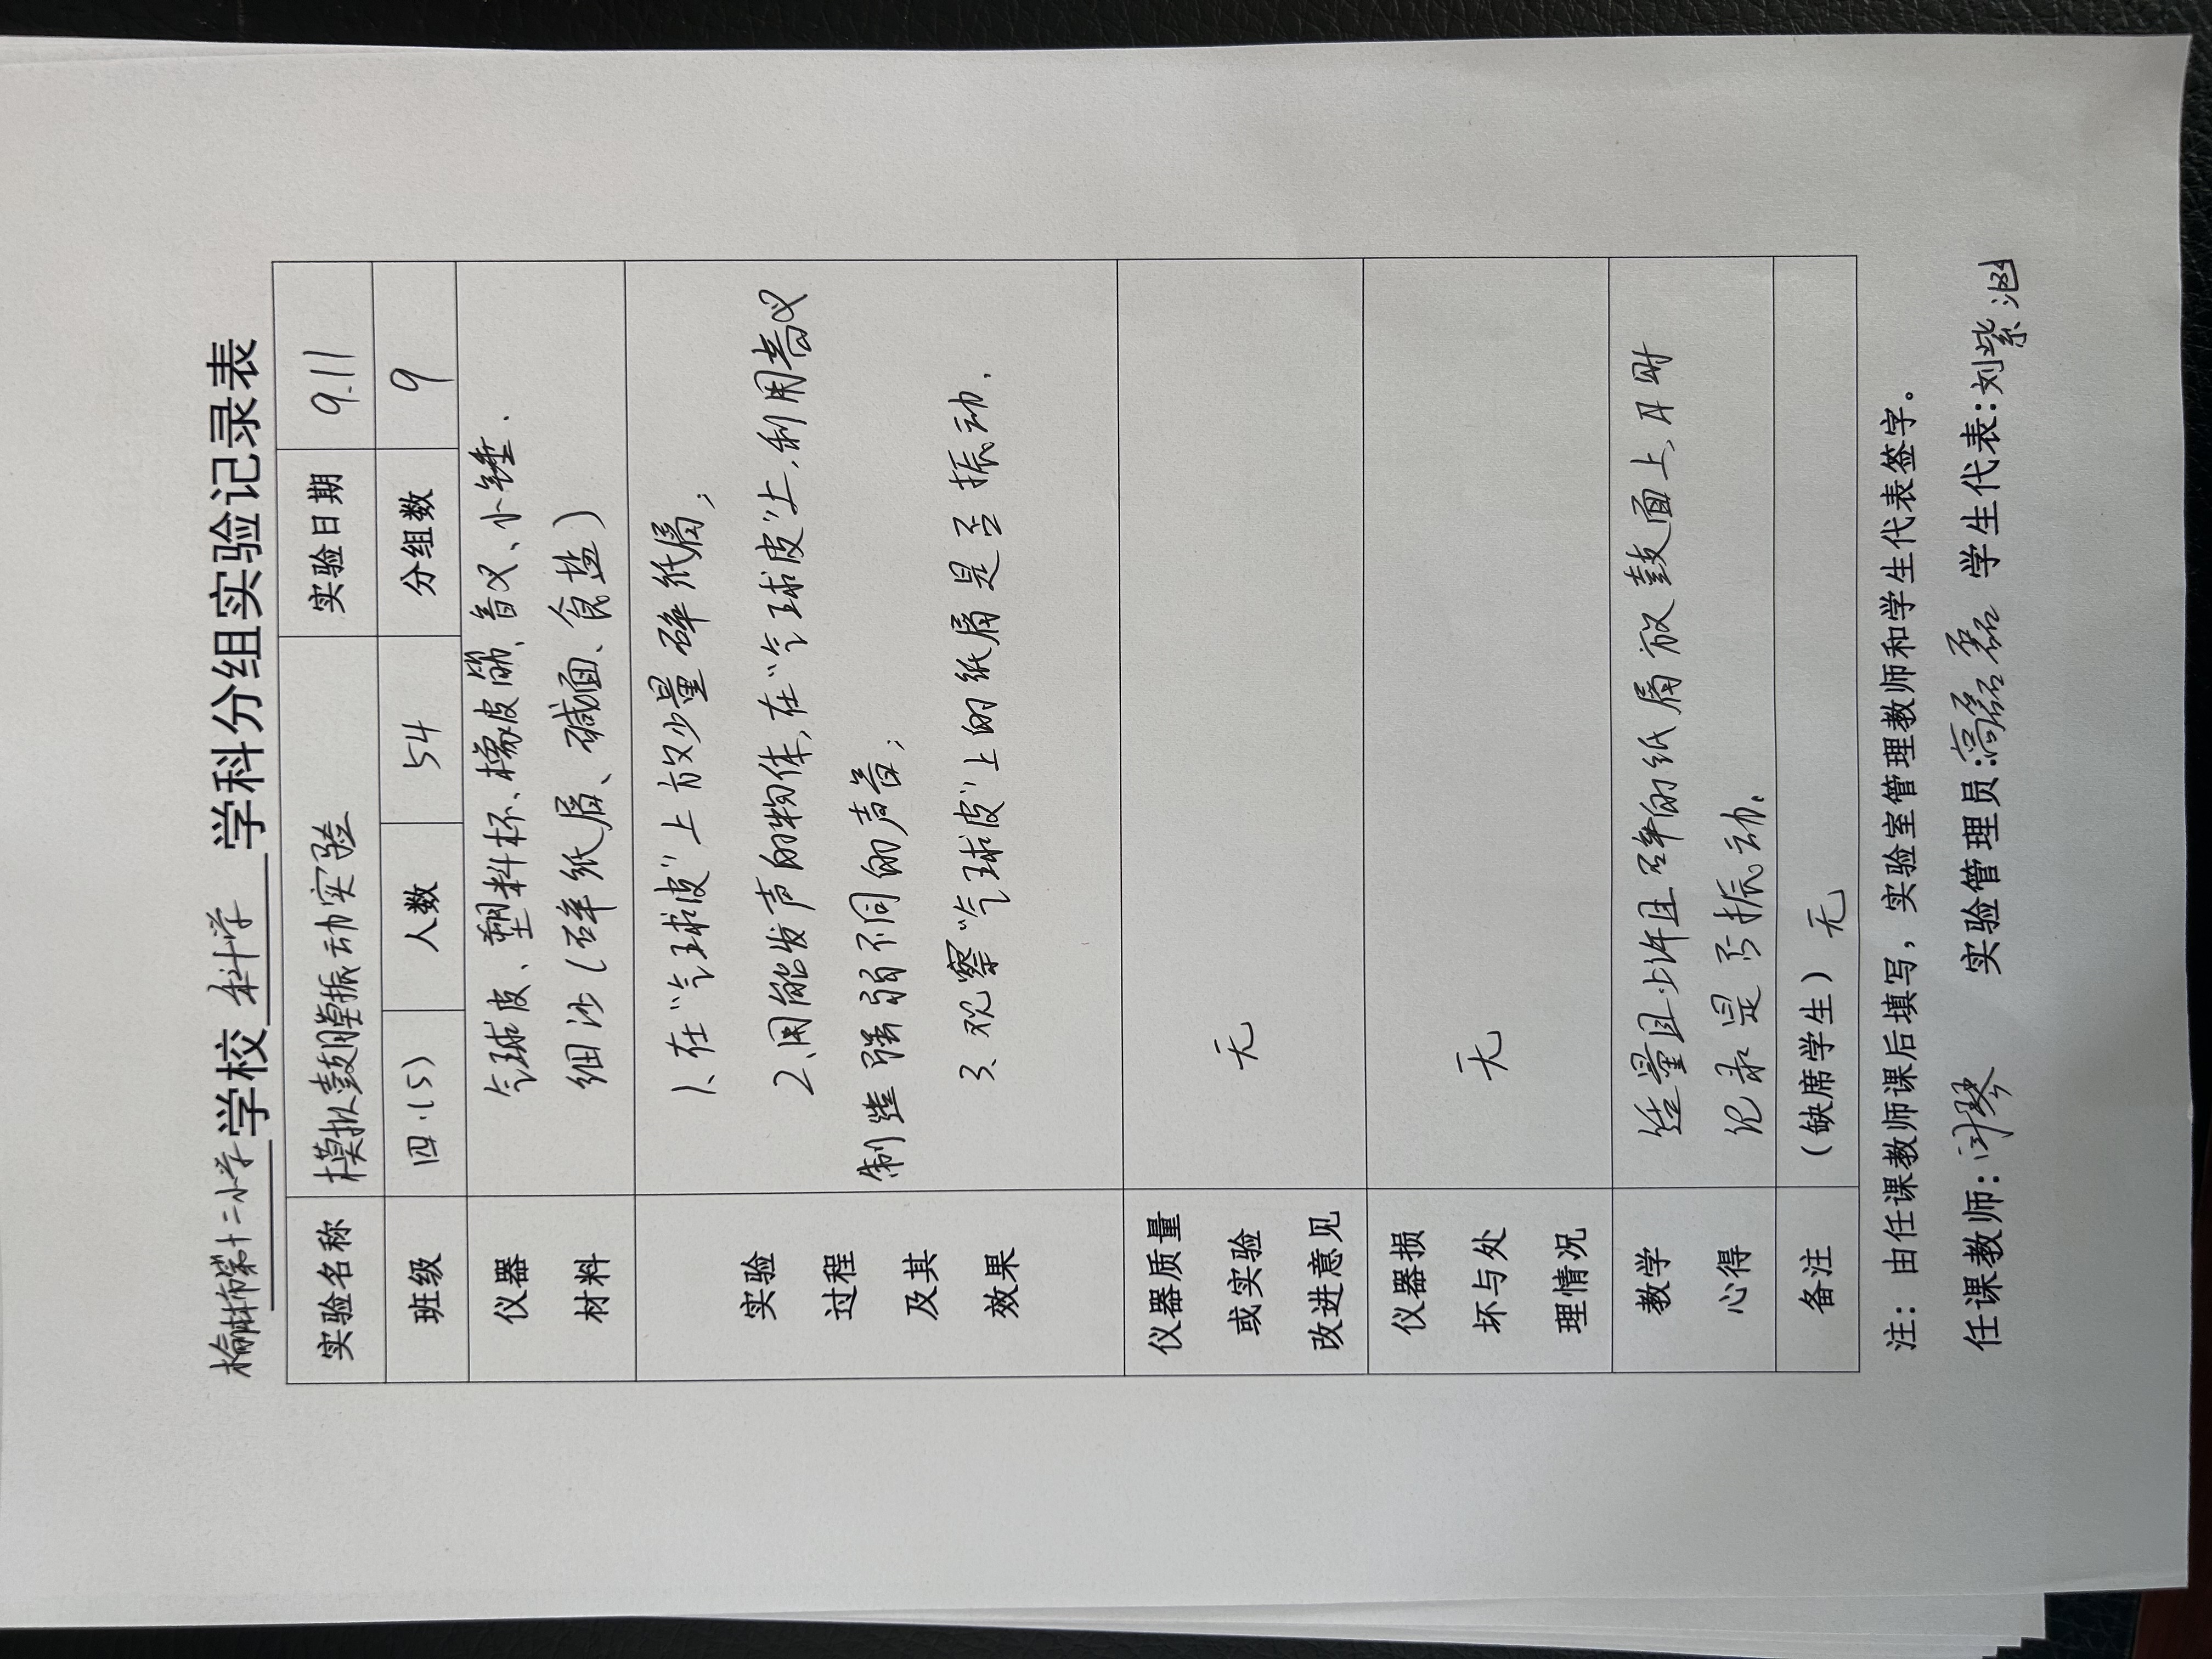 榆林市第十二小学学校 科学 学科分组实验记录表
实验名称 模拟鼓膜振动实验 实验日期 9.11
班级 四.(5) 人数 54 分组数 9
仪器 气球皮、塑料杯、橡皮筋、音叉、小锤.
材料 细沙(碎纸屑、碱面、食盐)
实验
过程
及其
效果
1、在"气球皮"上放少量碎纸屑;
2、用能发声的物体,在"气球皮"上,利用音叉
制造强弱不同的声音;
3、观察"气球皮"上的纸屑是否振动.
仪器质量
或实验
改进意见
无
仪器损
坏与处
理情况
无
教学 适量且少许且碎的纸屑放鼓面上,及时
心得 记录是否振动.
备注 (缺席学生) 无
注: 由任课教师课后填写, 实验室管理教师和学生代表签字。
任课教师: 琴 实验管理员:高磊磊 学生代表:刘紫涵